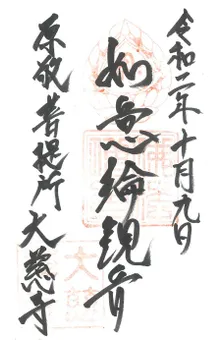 令和二年十月九日
如意輪観音
原敬菩提所大慈寺